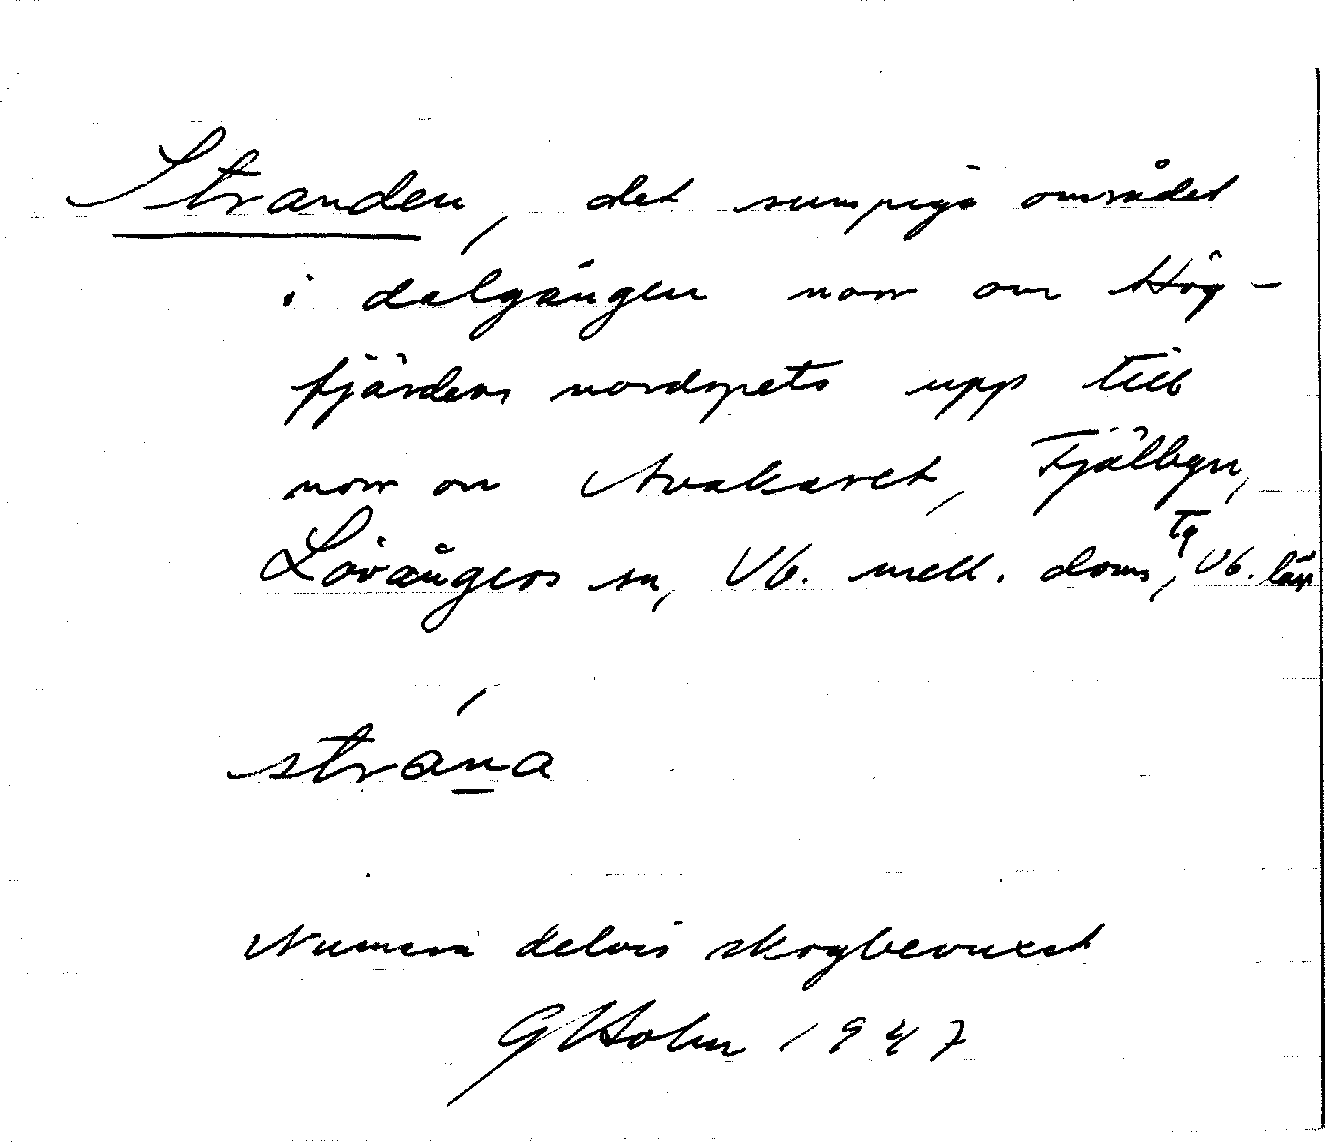 Stranden, det sumpiga området
i dalgången norr om Hög-
fjärdens nordspets upp till
norr om Avakäret, Fjälbyn,
Lövångers sn, Vb. mell. doms, Tg Vb. län
strána
Numera delvis skogbevuxet
G Holm 1947